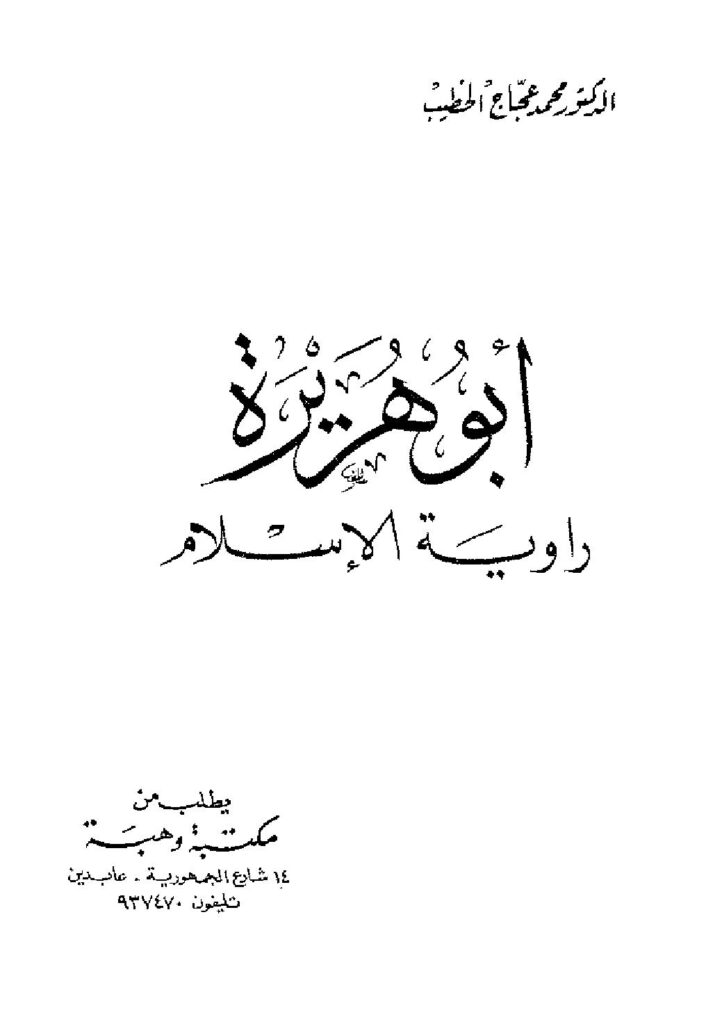 الدكتور محمد عجّاج الخطيب
أبو هُرَيْرَة
راوية الإسلام
يطلب من
مكتبة وهبة
١٤ شارع الجمهورية . عابدين
تليفون ٩٣٧٤٧٠